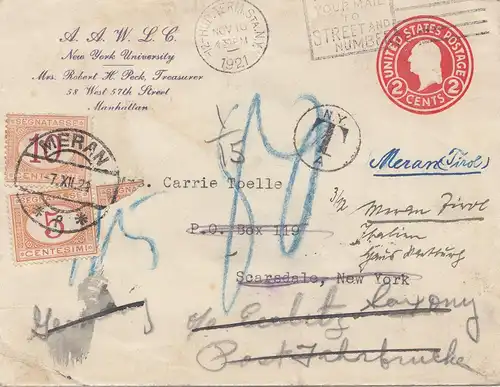 A. A. W. L. C.
New York University
Mrs. Robert H. Peck, Treasurer
58 West 57th Street
Manhattan
NOV 16
1921
YOUR MAIL
TO
STREET AND
NUMBER
UNITED STATES POSTAGE
2 2
CENTS
SEGNATASSE
10
CENTESIMI
MERAN
-7.XII.21
* 8 *
SEGNATASSE
5
CENTESIMI
15
N.Y.
T
Meran (Tirol)
Carrie Toelle
P.O. Box 119
Scarsdale, New York
3/12
Meran Tirol
Italien
Haus
Germany
c/o
Saxony
Post